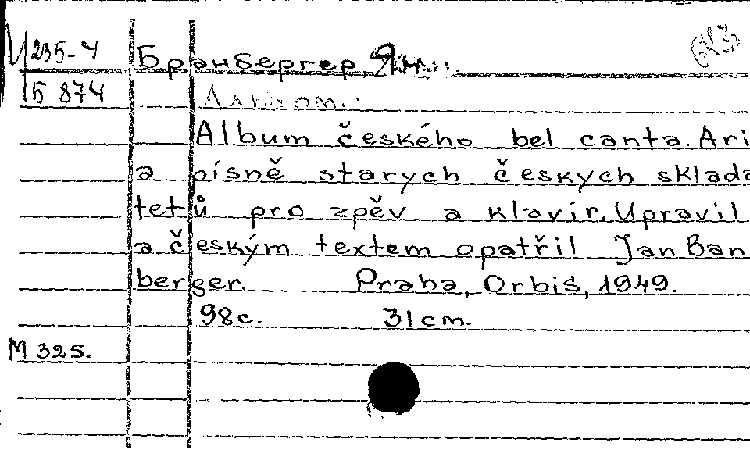 И 235-4 Бранбергер, Ян.
Б 874
Album českého bel canta. Ari
a písně starych českych sklada
telů pro zpěv a klavír. Upravil
a českým textem opatřil Jan Ban
berger. Praha, Orbis, 1949.
98c. 31cm.
М 325.